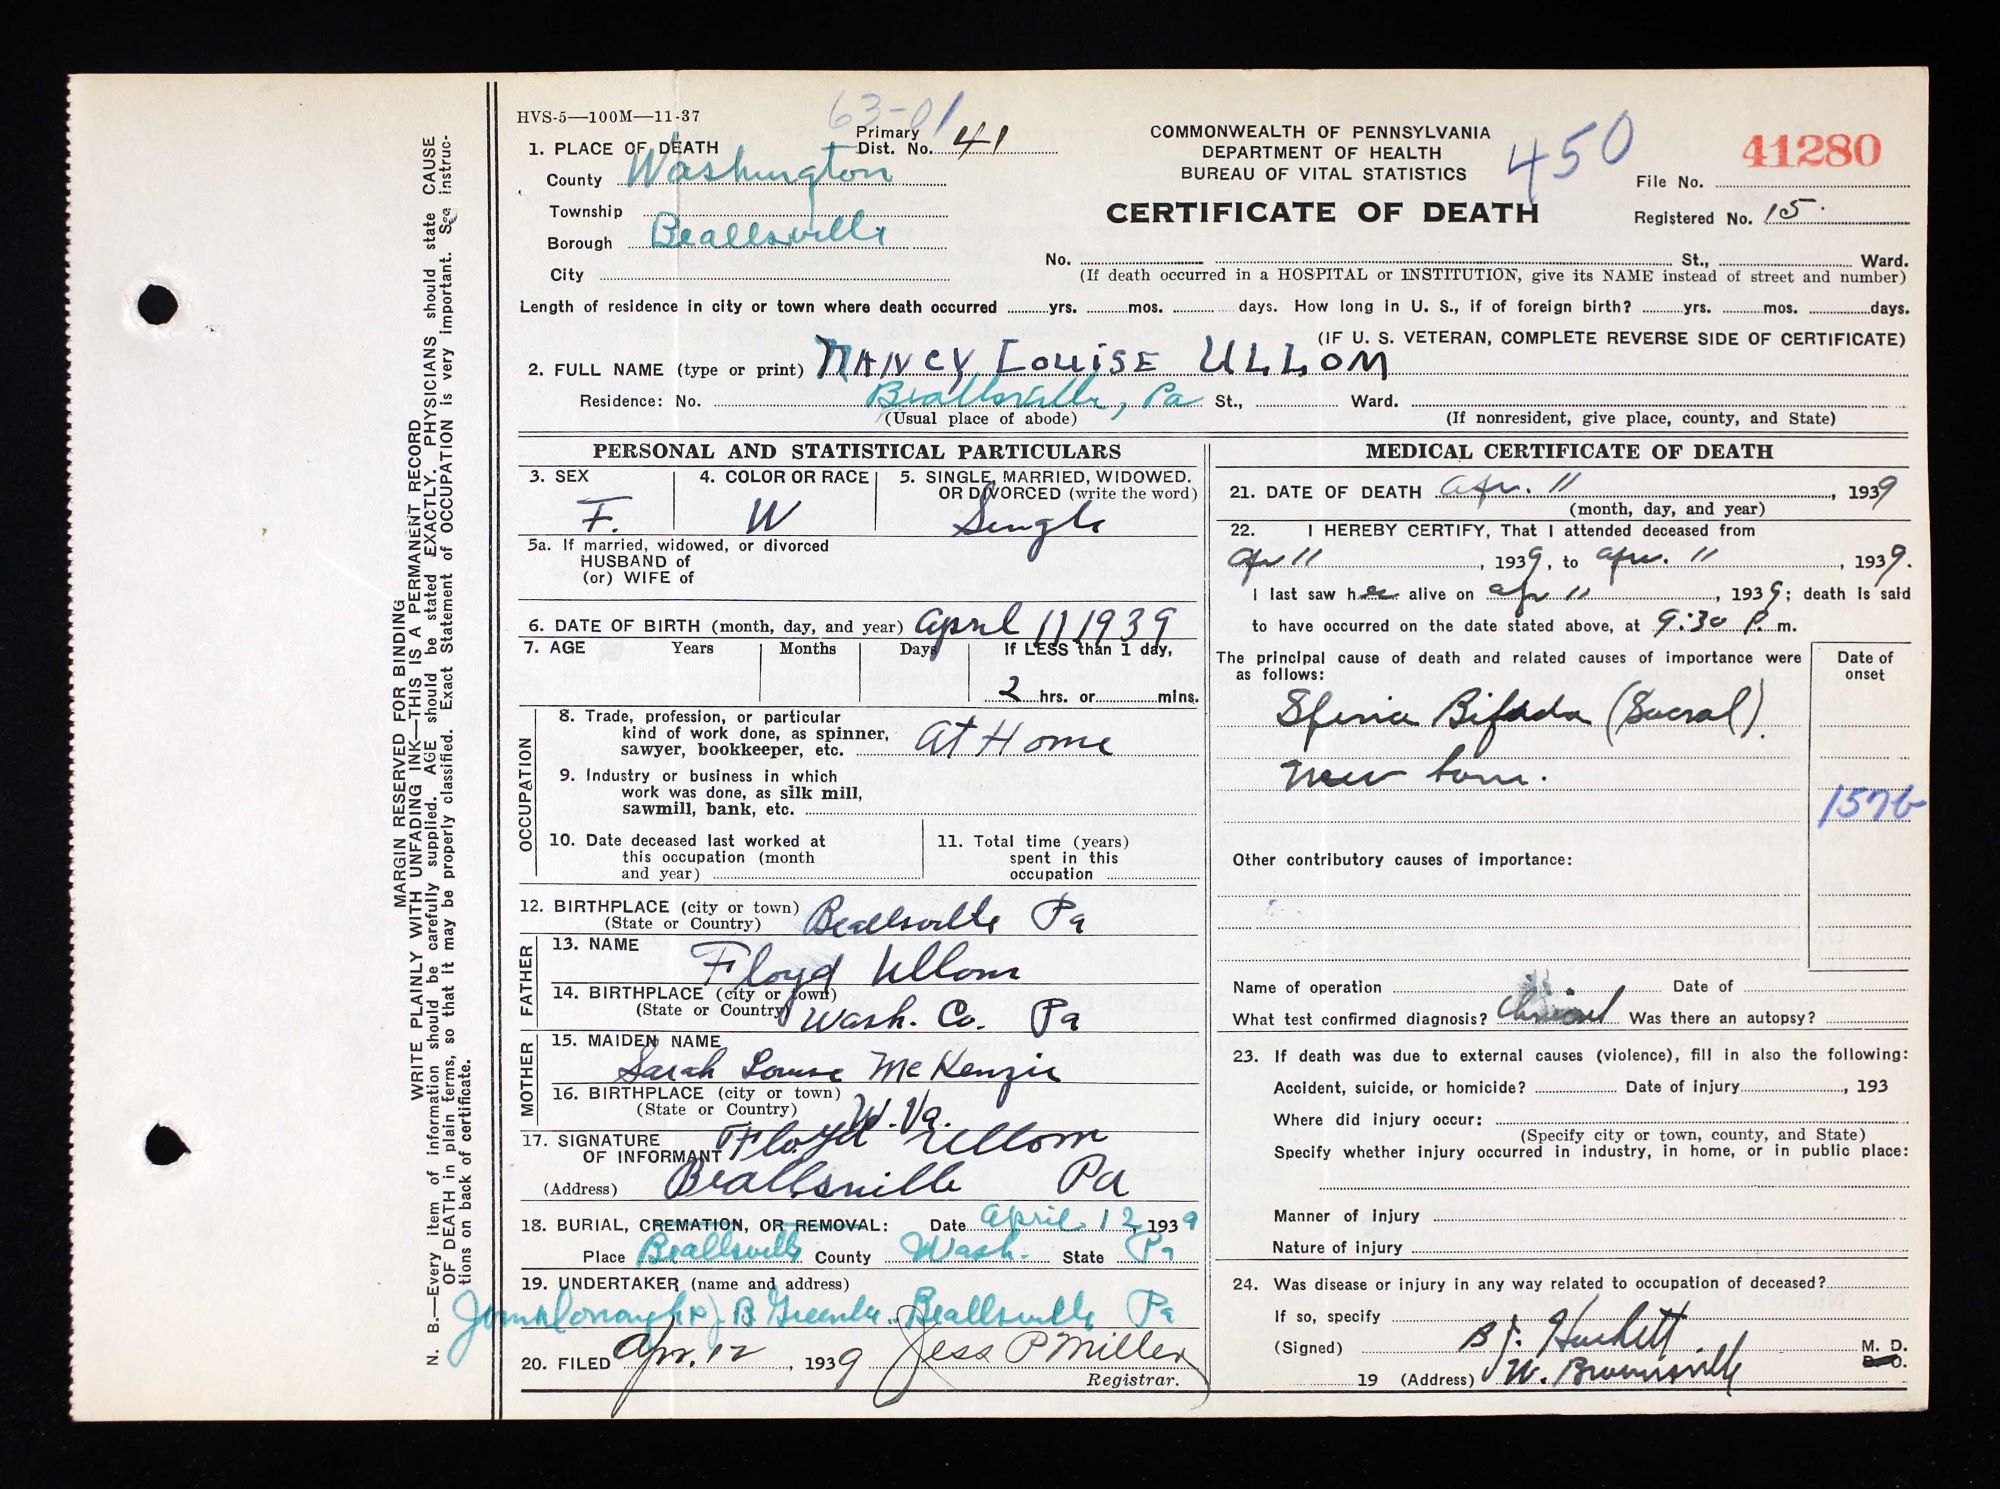 HVS-5—100M—11-37
63-01
1. PLACE OF DEATH
Primary
Dist. No. 41
County Washington
Township
Borough Beallsville
City
COMMONWEALTH OF PENNSYLVANIA
DEPARTMENT OF HEALTH
BUREAU OF VITAL STATISTICS
CERTIFICATE OF DEATH
450
41280
File No.
Registered No. 15.
No. St., Ward.
(If death occurred in a HOSPITAL or INSTITUTION, give its NAME instead of street and number)
Length of residence in city or town where death occurred yrs. mos. days. How long in U. S., if of foreign birth? yrs. mos. days.
(IF U. S. VETERAN, COMPLETE REVERSE SIDE OF CERTIFICATE)
2. FULL NAME (type or print) NANCY LOUISE ULLOM
Residence: No. Beallsville, Pa St., Ward.
(Usual place of abode) (If nonresident, give place, county, and State)
PERSONAL AND STATISTICAL PARTICULARS
3. SEX
F.
4. COLOR OR RACE
W
5. SINGLE, MARRIED, WIDOWED,
OR DIVORCED (write the word)
Single
5a. If married, widowed, or divorced
HUSBAND of
(or) WIFE of
6. DATE OF BIRTH (month, day, and year) April 11 1939
7. AGE Years Months Days If LESS than 1 day,
2 hrs. or mins.
OCCUPATION
8. Trade, profession, or particular
kind of work done, as spinner,
sawyer, bookkeeper, etc. At Home
9. Industry or business in which
work was done, as silk mill,
sawmill, bank, etc.
10. Date deceased last worked at
this occupation (month
and year)
11. Total time (years)
spent in this
occupation
12. BIRTHPLACE (city or town) Beallsville Pa
(State or Country)
FATHER
13. NAME Floyd Ullom
14. BIRTHPLACE (city or town)
(State or Country) Wash. Co. Pa
MOTHER
15. MAIDEN NAME
Sarah Louise McKenzie
16. BIRTHPLACE (city or town)
(State or Country) W. Va.
17. SIGNATURE
OF INFORMANT Floyd Ullom
(Address) Beallsville Pa
18. BURIAL, CREMATION, OR REMOVAL: Date April 12, 1939
Place Beallsville County Wash. State Pa
19. UNDERTAKER (name and address)
J. B. Greenlee Beallsville Pa
20. FILED Apr. 12, 1939 Jess P Miller
Registrar.
MEDICAL CERTIFICATE OF DEATH
21. DATE OF DEATH Apr. 11, 1939
(month, day, and year)
22. I HEREBY CERTIFY, That I attended deceased from
Apr 11, 1939, to Apr. 11, 1939.
I last saw her alive on Apr 11, 1939; death is said
to have occurred on the date stated above, at 9:30 P.m.
The principal cause of death and related causes of importance were
as follows:
Date of
onset
Spina Bifida (Sacral).
New born.
157b
Other contributory causes of importance:
Name of operation Date of
What test confirmed diagnosis? Clinical Was there an autopsy?
23. If death was due to external causes (violence), fill in also the following:
Accident, suicide, or homicide? Date of injury, 193
Where did injury occur:
(Specify city or town, county, and State)
Specify whether injury occurred in industry, in home, or in public place:
Manner of injury
Nature of injury
24. Was disease or injury in any way related to occupation of deceased?
If so, specify
(Signed) B. J. Hackett M. D.
D. O.
19 (Address) W. Brownsville
MARGIN RESERVED FOR BINDING
WRITE PLAINLY WITH UNFADING INK—THIS IS A PERMANENT RECORD
N. B.—Every item of information should be carefully supplied. AGE should be stated EXACTLY. PHYSICIANS should state CAUSE
OF DEATH in plain terms, so that it may be properly classified. Exact Statement of OCCUPATION is very important. See instruc-
tions on back of certificate.